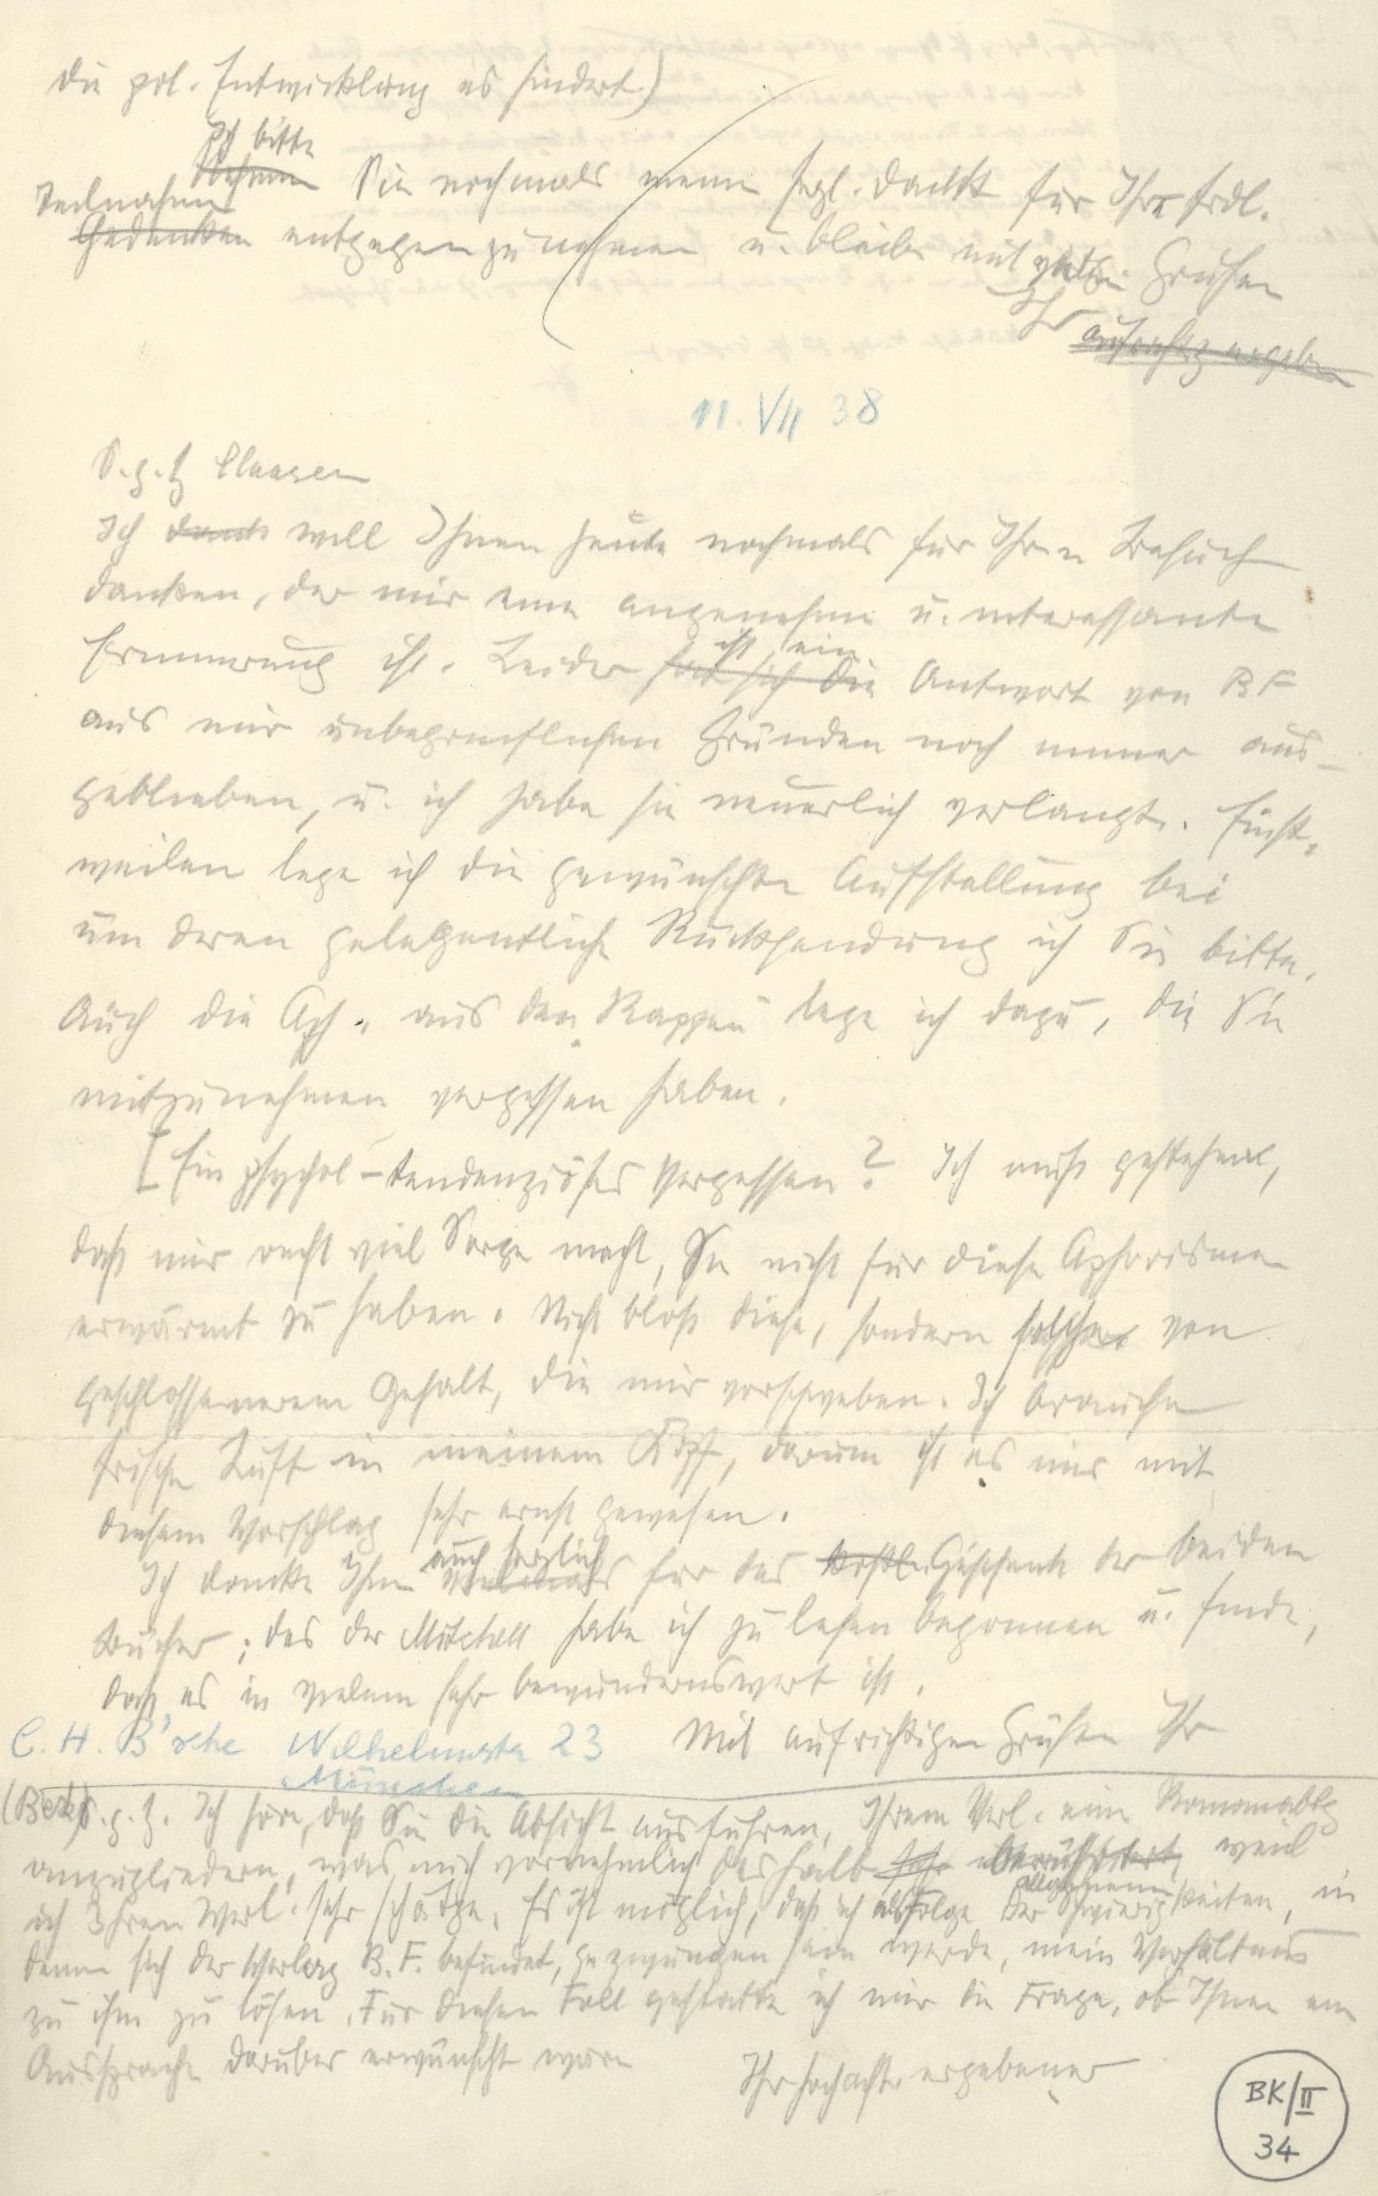 die pol. Entwicklung es hindert.)
Ich bitte
Nehmen Sie nochmals meinen herzl. Dank für Ihre frdl.
Teilnahme
Gedenken entgegenzunehmen u. bleibe mit Grüßen
Ihr aufrichtig ergeben
11. VII 38
S. g. H Claasen
Ich dank will Ihnen heute nochmals für Ihren Besuch
danken, der mir eine angenehme u. interessante
Erinnerung ist. Leider hat sich die ist eine Antwort von BF
aus mir unbegreiflichen Gründen noch immer aus-
geblieben, u. ich habe sie neuerlich verlangt. Einst-
weilen lege ich die gewünschte Aufstellung bei
um deren gelegentliche Rücksendung ich Sie bitte.
Auch die Aph. aus den Rappen lege ich dazu, die Sie
mitzunehmen vergessen haben.
[Ein psychol-tendenziöses Vergessen? Ich muß gestehen,
daß mir recht viel Sorge macht, Sie nicht für diese Aphorismen
erwärmt zu haben. Nicht bloß diese, sondern solche von
geschlossenerem Gehalt, die mir vorschweben. Ich brauche
frische Luft in meinem Kopf, darum ist es mir mit
diesem Vorschlag sehr ernst gewesen.
Ich danke Ihnen auch herzlich für das Geschenk der beiden
Bücher; das der Mitchell habe ich zu lesen begonnen u. finde,
daß es in vielem sehr bewundernswert ist.
Mit aufrichtigen Grüßen Ihr
C. H. B'sche Wilhelmstr 23
München
(Beck) S. g. H. Ich höre, daß Sie die Absicht ausführen, Ihrem Verl. eine Romanabtlg
anzugliedern, was mich vornehmlich deshalb sehr weil
ich Ihren Verl. sehr schätze. Es ist möglich, daß ich als Folge der allgemeinen Schwierigkeiten, in
denen sich der Verlag B. F. befindet, gezwungen sein werde, mein Verhältnis
zu ihm zu lösen. Für diesen Fall gestatte ich mir die Frage, ob Ihnen eine
Aussprache darüber erwünscht wäre
Ihr hochacht. ergebener
BK/II
34